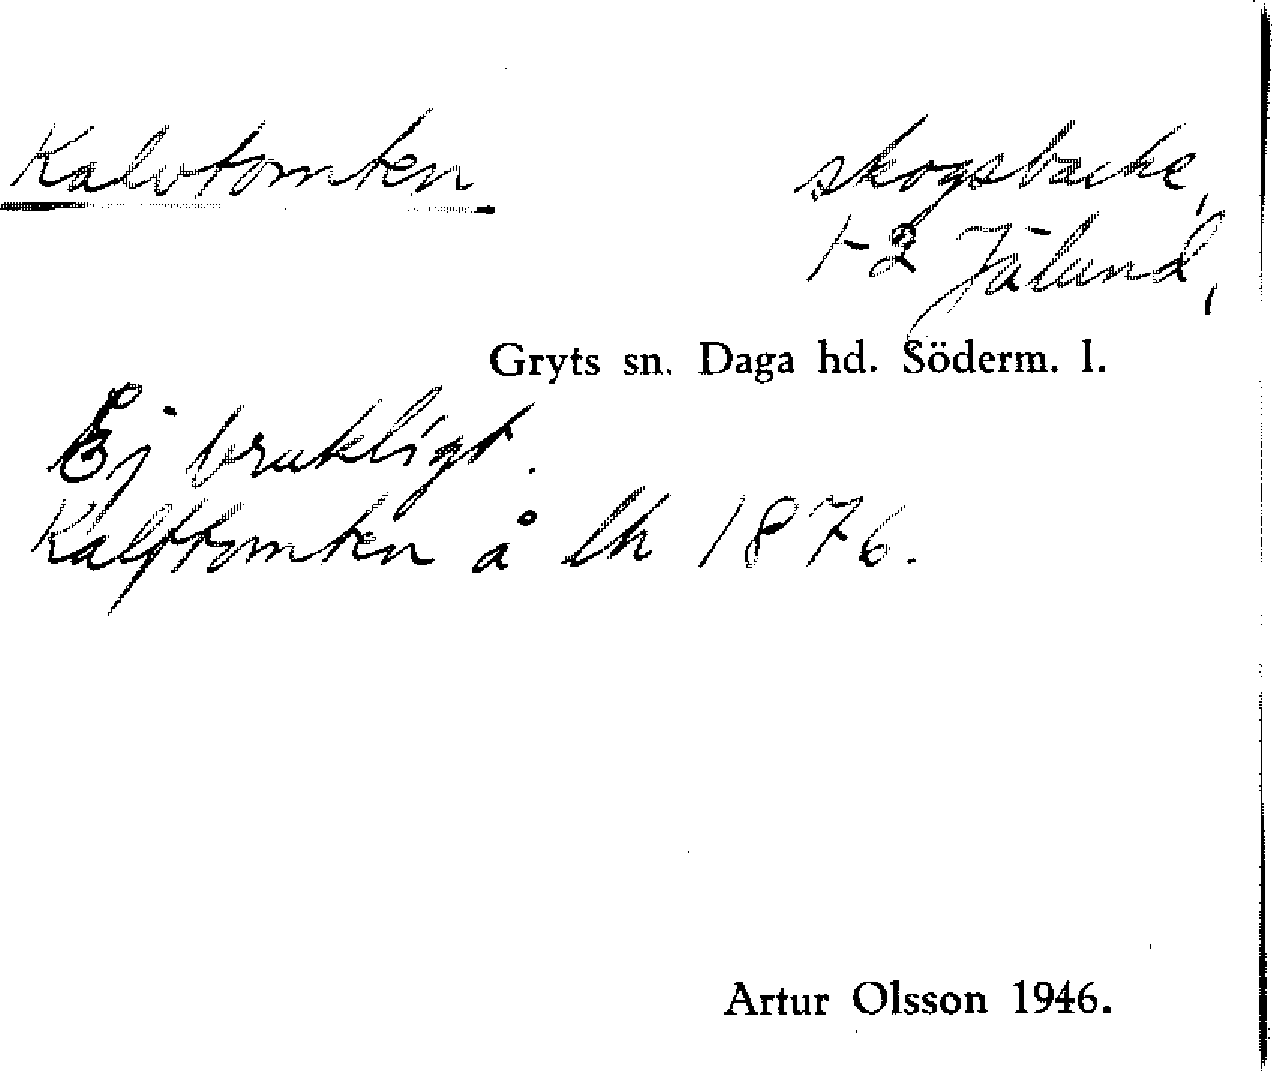 Kalvtomten
skogsbacke,
1-2 Jälund,
Gryts sn. Daga hd. Söderm. l.
Ej brukligt.
Kalftomten å lk 1876.
Artur Olsson 1946.